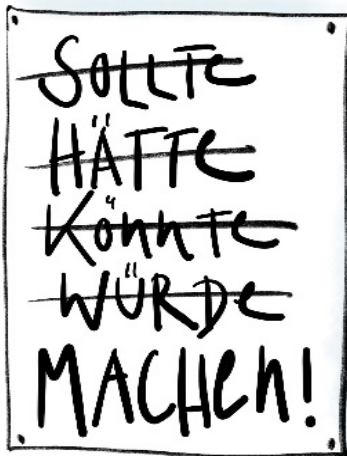 SOLLTE
HÄTTE
KÖNNTE
WÜRDE
MACHEN!